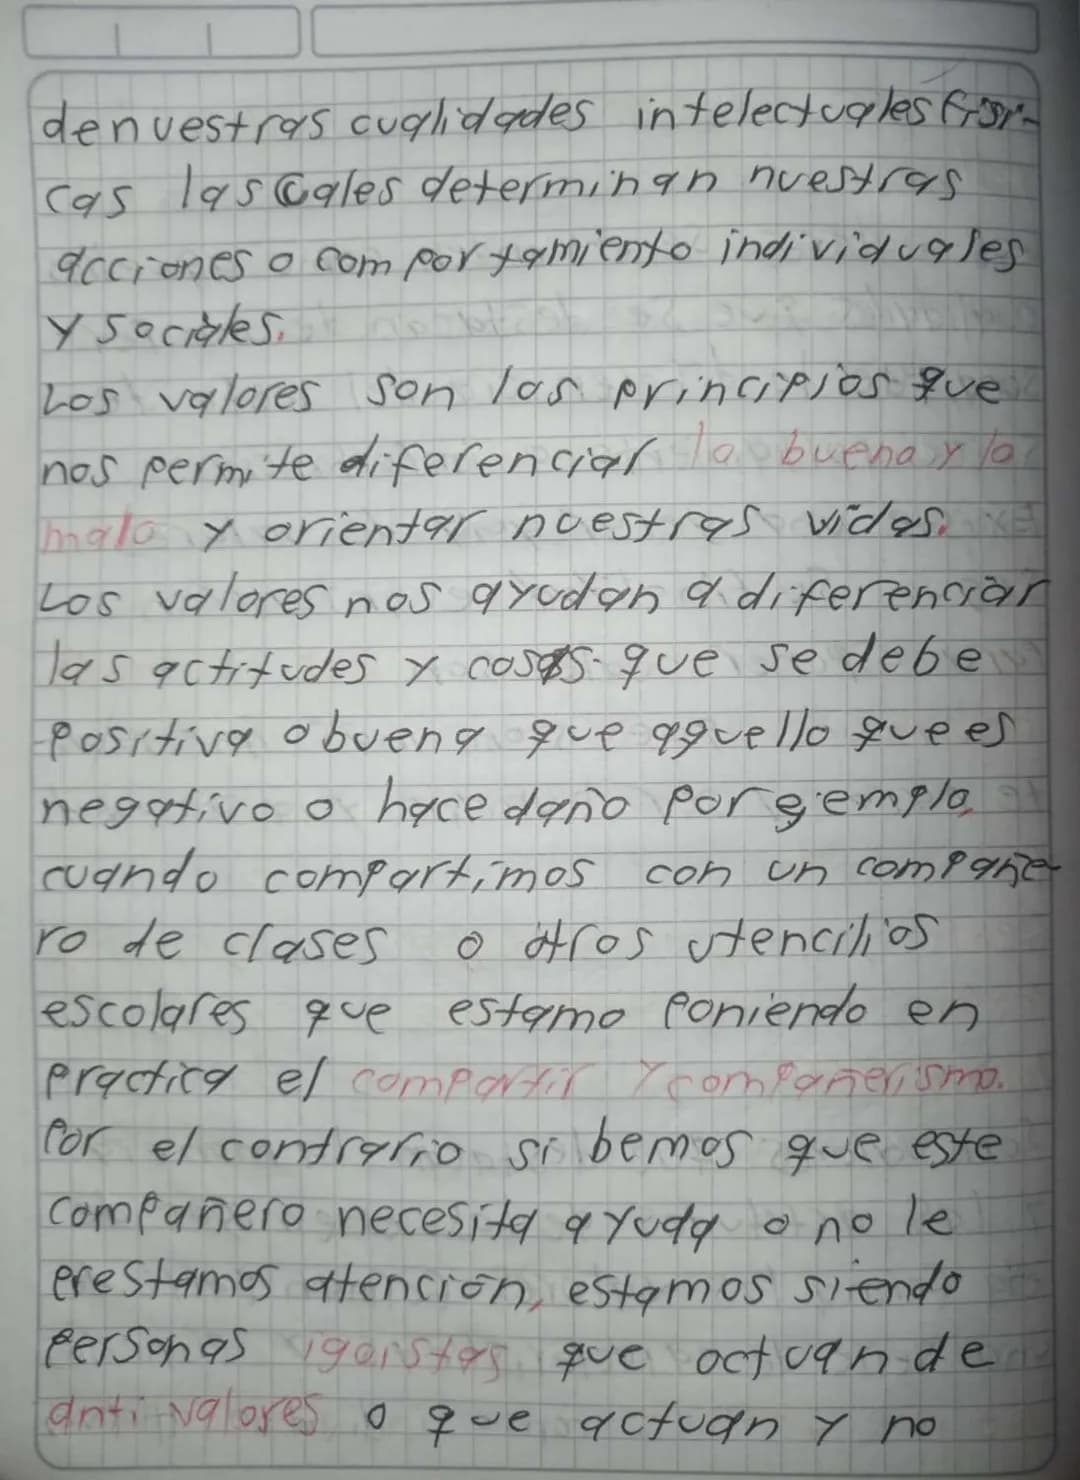 de nuestras cualidades intelectuales físi-
cas las cales determinan nuestras
acciones o comportamiento individuales
y sociales.
Los valores son los principios que
nos permite diferenciar lo bueno y lo
malo y orientar nuestras vidas.
Los valores nos ayudan a diferenciar
las actitudes y cosas que se debe
positiva o buena que aquello que es
negativo o hace daño por ejemplo,
cuando compartimos con un compañe
ro de clases o otros utencilios
escolares que estamo poniendo en
practica el compartir y compañerismo.
Por el contrario si bemos que este
compañero necesita ayuda o no le
prestamos atención, estamos siendo
personas igoistas que octuan de
anti valores o que actuan y no